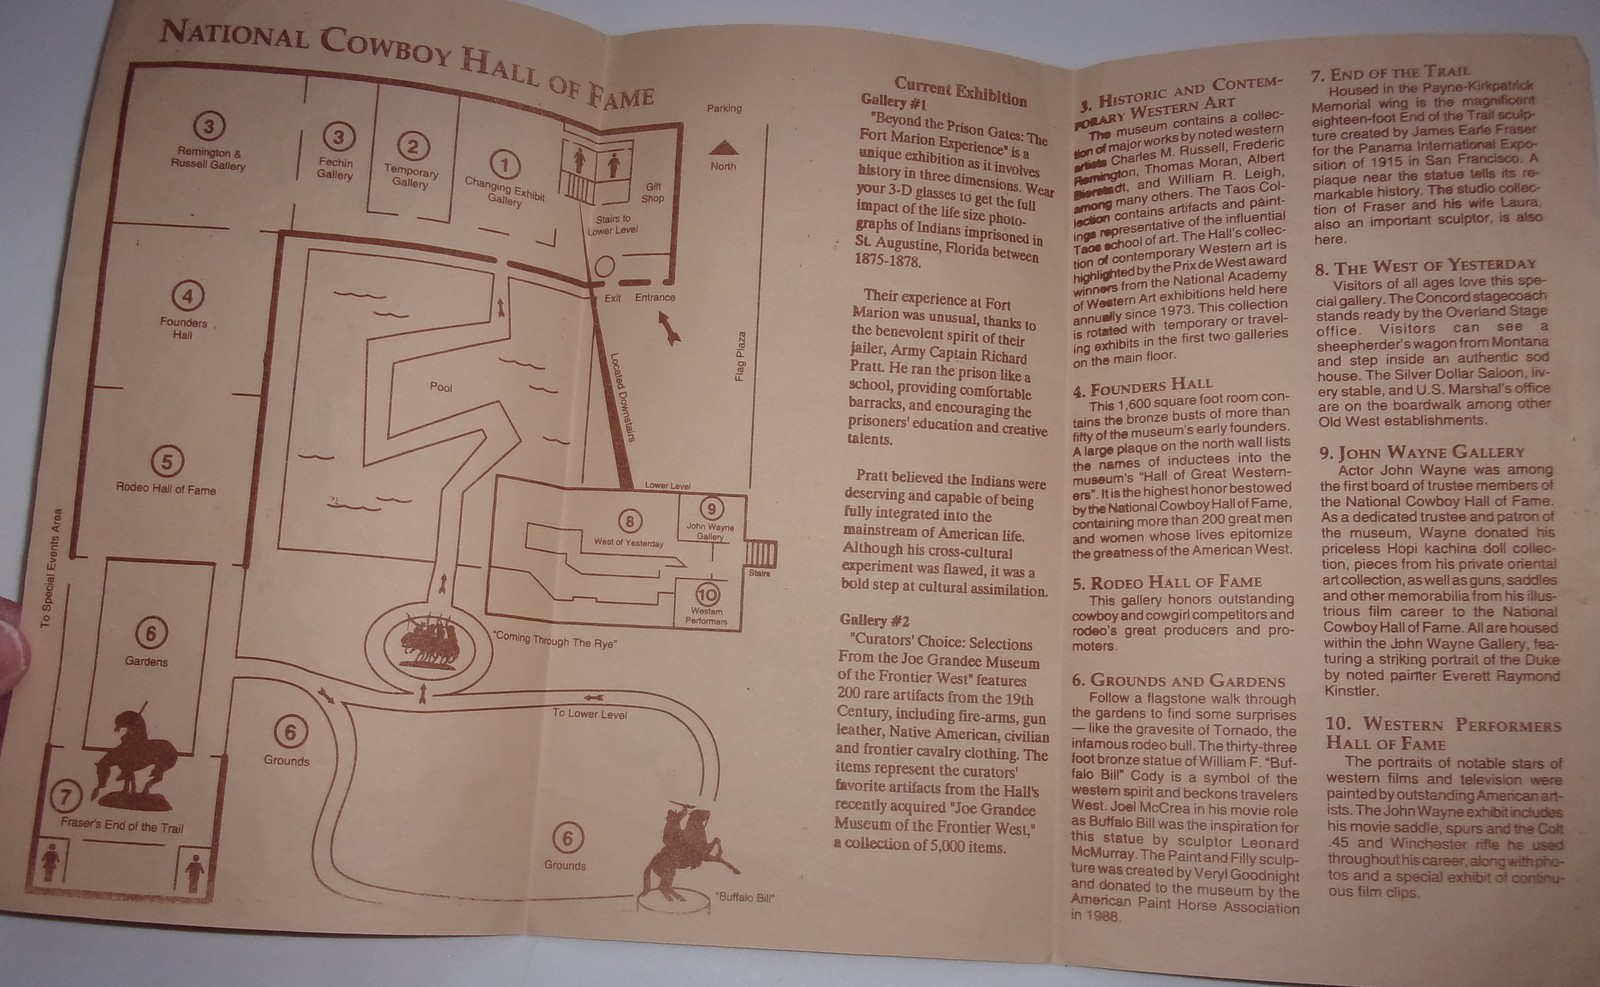 NATIONAL COWBOY HALL OF FAME
3
Remington &
Russell Gallery
3
Fechin
Gallery
2
Temporary
Gallery
1
Changing Exhibit
Gallery
Gift
Shop
Stairs to
Lower Level
Parking
North
4
Founders
Hall
Exit
Entrance
Pool
Located Downstairs
Flag Plaza
5
Rodeo Hall of Fame
To Special Events Area
Lower Level
8
West of Yesterday
9
John Wayne
Gallery
Stairs
10
Western
Performers
6
Gardens
"Coming Through The Rye"
To Lower Level
6
Grounds
7
Fraser's End of the Trail
6
Grounds
"Buffalo Bill"
Current Exhibition
Gallery #1
"Beyond the Prison Gates: The
Fort Marion Experience" is a
unique exhibition as it involves
history in three dimensions. Wear
your 3-D glasses to get the full
impact of the life size photo-
graphs of Indians imprisoned in
St. Augustine, Florida between
1875-1878.
Their experience at Fort
Marion was unusual, thanks to
the benevolent spirit of their
jailer, Army Captain Richard
Pratt. He ran the prison like a
school, providing comfortable
barracks, and encouraging the
prisoners' education and creative
talents.
Pratt believed the Indians were
deserving and capable of being
fully integrated into the
mainstream of American life.
Although his cross-cultural
experiment was flawed, it was a
bold step at cultural assimilation.
Gallery #2
"Curators' Choice: Selections
From the Joe Grandee Museum
of the Frontier West" features
200 rare artifacts from the 19th
Century, including fire-arms, gun
leather, Native American, civilian
and frontier cavalry clothing. The
items represent the curators'
favorite artifacts from the Hall's
recently acquired "Joe Grandee
Museum of the Frontier West,"
a collection of 5,000 items.
3. HISTORIC AND CONTEM-
PORARY WESTERN ART
The museum contains a collec-
tion of major works by noted western
artists Charles M. Russell, Frederic
Remington, Thomas Moran, Albert
Bierstadt, and William R. Leigh,
among many others. The Taos Col-
lection contains artifacts and paint-
ings representative of the influential
Taos school of art. The Hall's collec-
tion of contemporary Western art is
highlighted by the Prix de West award
winners from the National Academy
of Western Art exhibitions held here
annually since 1973. This collection
is rotated with temporary or travel-
ing exhibits in the first two galleries
on the main floor.
4. FOUNDERS HALL
This 1,600 square foot room con-
tains the bronze busts of more than
fifty of the museum's early founders.
A large plaque on the north wall lists
the names of inductees into the
museum's "Hall of Great Western-
ers". It is the highest honor bestowed
by the National Cowboy Hall of Fame,
containing more than 200 great men
and women whose lives epitomize
the greatness of the American West.
5. RODEO HALL OF FAME
This gallery honors outstanding
cowboy and cowgirl competitors and
rodeo's great producers and pro-
moters.
6. GROUNDS AND GARDENS
Follow a flagstone walk through
the gardens to find some surprises
— like the gravesite of Tornado, the
infamous rodeo bull. The thirty-three
foot bronze statue of William F. "Buf-
falo Bill" Cody is a symbol of the
western spirit and beckons travelers
West. Joel McCrea in his movie role
as Buffalo Bill was the inspiration for
this statue by sculptor Leonard
McMurray. The Paint and Filly sculp-
ture was created by Veryl Goodnight
and donated to the museum by the
American Paint Horse Association
in 1988.
7. END OF THE TRAIL
Housed in the Payne-Kirkpatrick
Memorial wing is the magnificent
eighteen-foot End of the Trail sculp-
ture created by James Earle Fraser
for the Panama International Expo-
sition of 1915 in San Francisco. A
plaque near the statue tells its re-
markable history. The studio collec-
tion of Fraser and his wife Laura,
also an important sculptor, is also
here.
8. THE WEST OF YESTERDAY
Visitors of all ages love this spe-
cial gallery. The Concord stagecoach
stands ready by the Overland Stage
office. Visitors can see a
sheepherder's wagon from Montana
and step inside an authentic sod
house. The Silver Dollar Saloon, liv-
ery stable, and U.S. Marshal's office
are on the boardwalk among other
Old West establishments.
9. JOHN WAYNE GALLERY
Actor John Wayne was among
the first board of trustee members of
the National Cowboy Hall of Fame.
As a dedicated trustee and patron of
the museum, Wayne donated his
priceless Hopi kachina doll collec-
tion, pieces from his private oriental
art collection, as well as guns, saddles
and other memorabilia from his illus-
trious film career to the National
Cowboy Hall of Fame. All are housed
within the John Wayne Gallery, fea-
turing a striking portrait of the Duke
by noted painter Everett Raymond
Kinstler.
10. WESTERN PERFORMERS
HALL OF FAME
The portraits of notable stars of
western films and television were
painted by outstanding American art-
ists. The John Wayne exhibit includes
his movie saddle, spurs and the Colt
.45 and Winchester rifle he used
throughout his career, along with pho-
tos and a special exhibit of continu-
ous film clips.